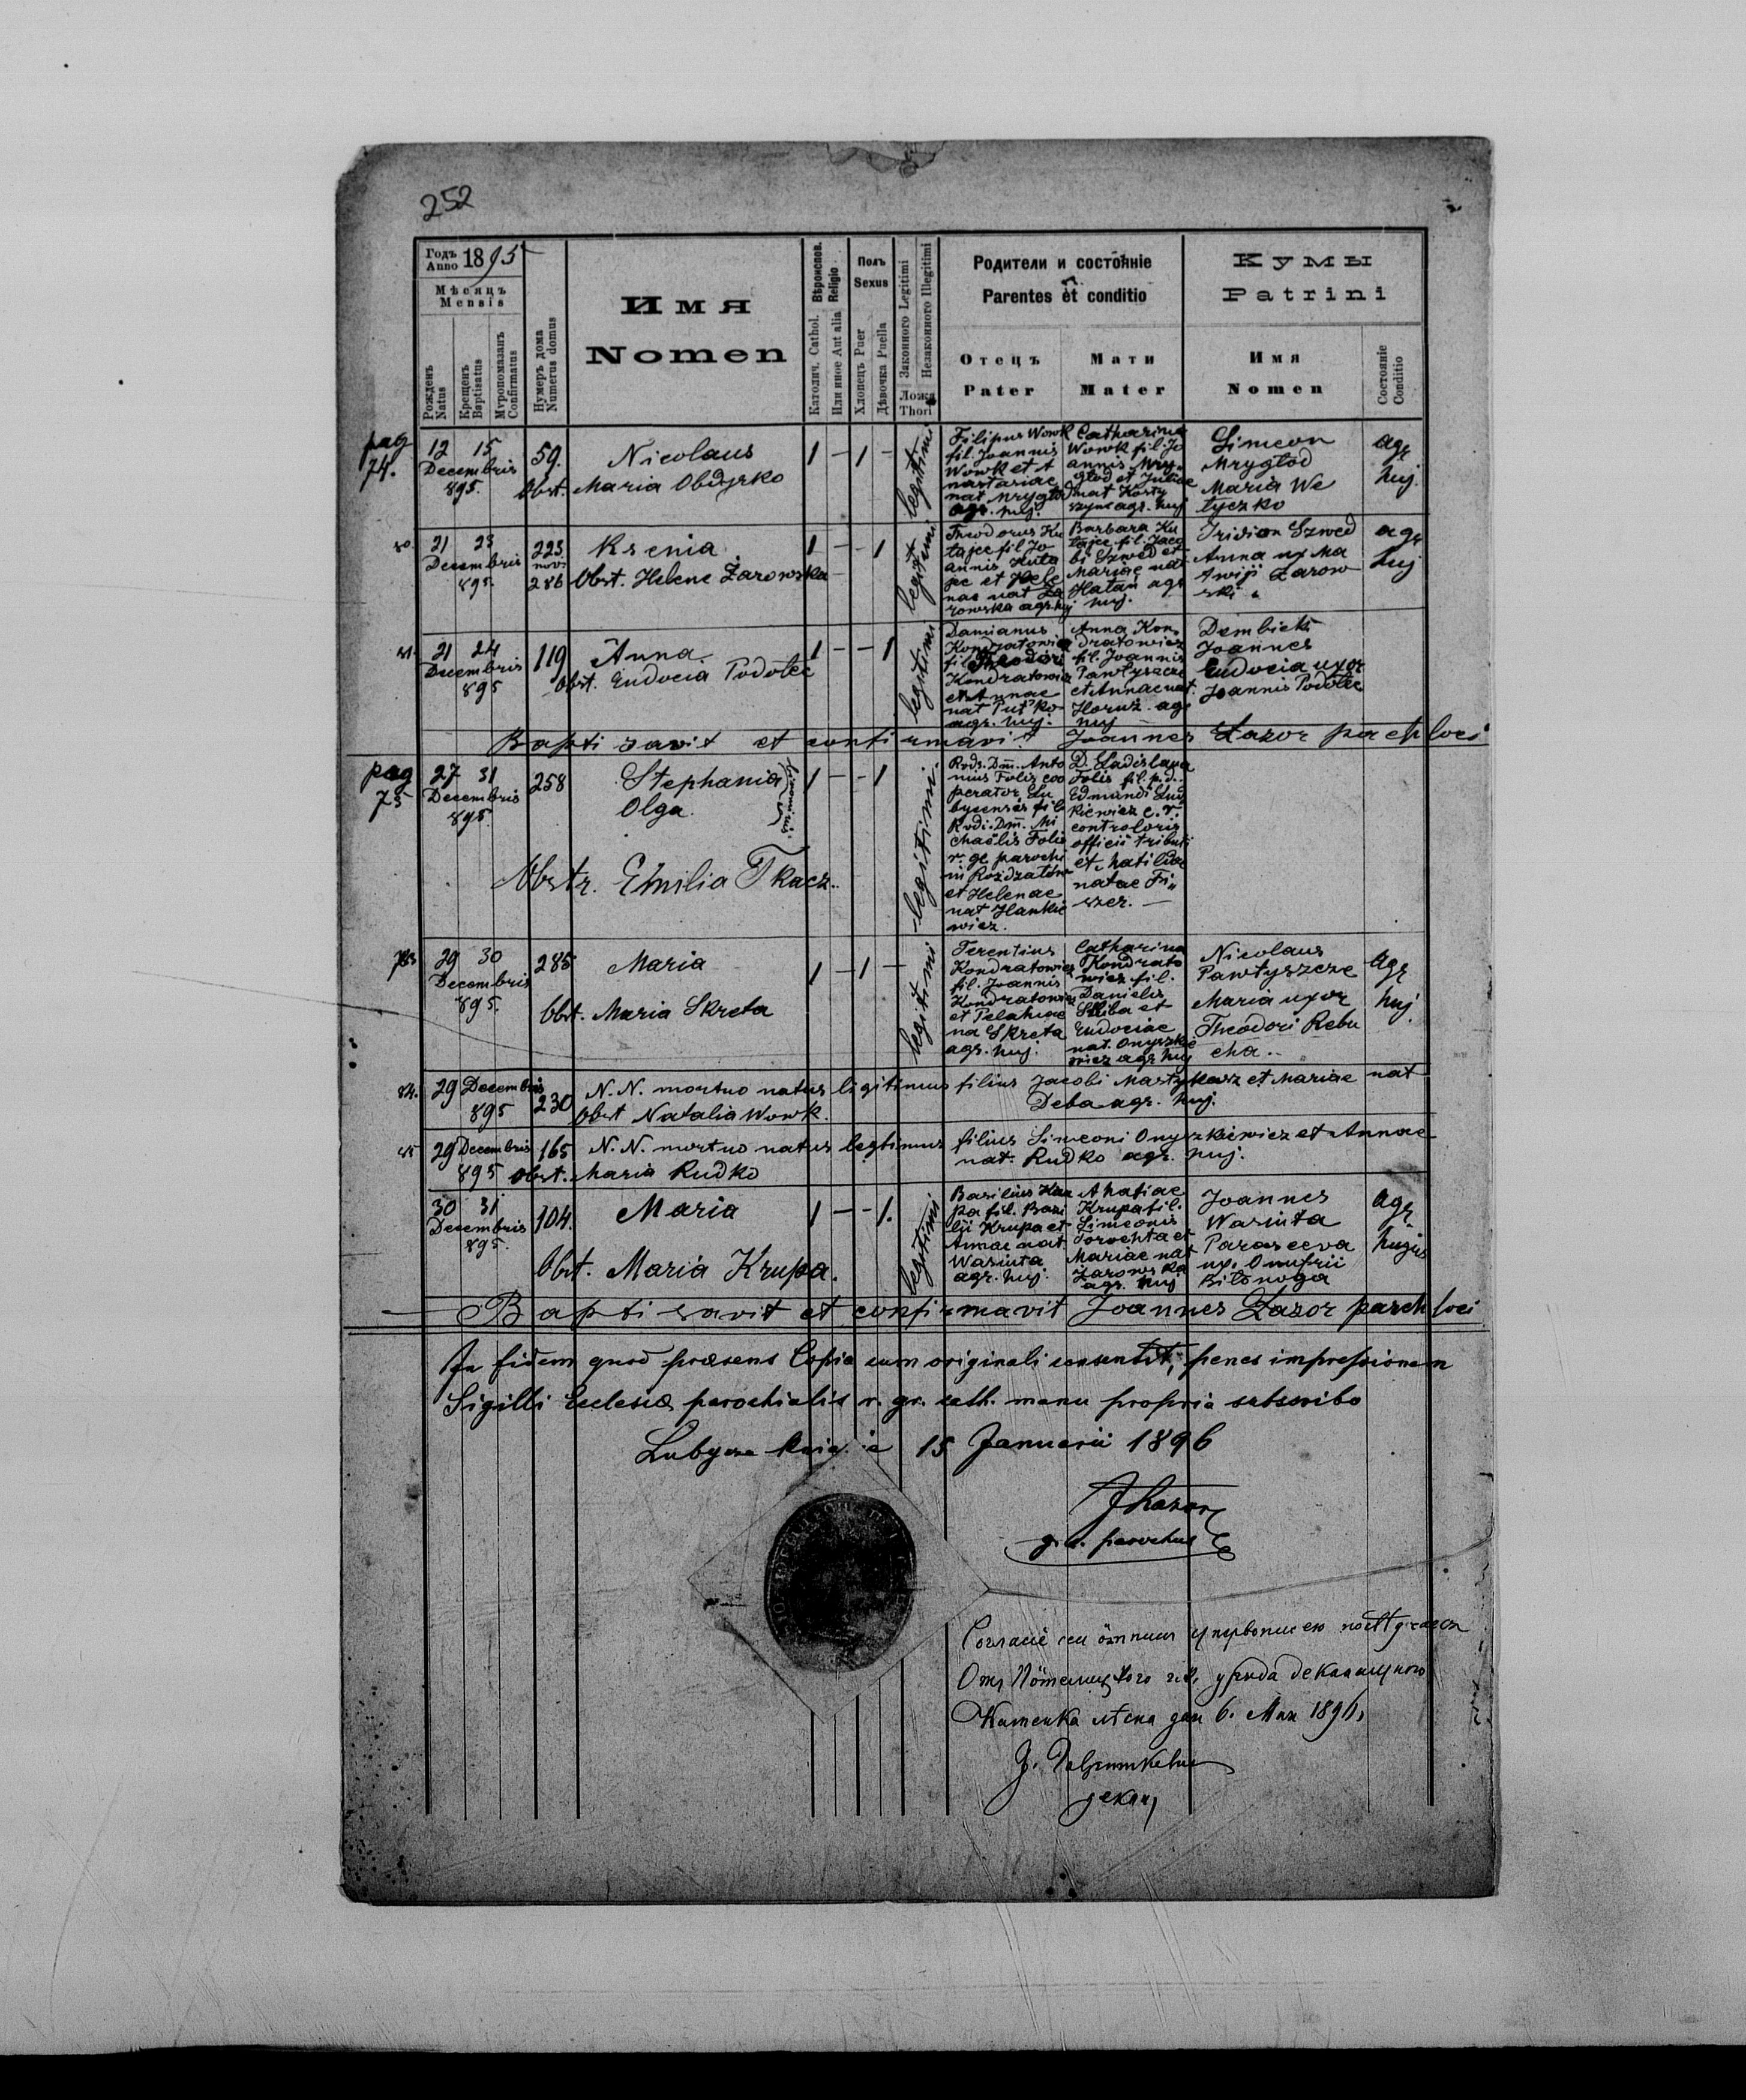 252
Годъ Anno 1895
Мѣсяцъ
Mensis
Рожденъ Natus
Крещенъ Baptisatus
Мѵропомазанъ Confirmatus
Нумеръ дома Numerus domus
Имя
Nomen
Вѣроиспов. Religio
Католич. Cathol.
Или иное Aut alia
Полъ
Sexus
Хлопецъ Puer
Дѣвочка Puella
Законного Legitimi
Незаконного Illegitimi
Ложа
Thori
Родители и состоѧніе
Parentes et conditio
Отецъ
Pater
Мати
Mater
Кумы
Patrini
Имя
Nomen
Состояніе
Conditio
pag 74.
12 15
Decembris
895.
59.
Nicolaus
Obst. Maria Obdyrko
1 – 1 –
legitimi
Filipus Wowk
fil. Joannis
Wowk et A
nastasiae
nat Mrygłod
agr. huj.
Catharina
Wowk fil. Jo
annis Mry„
głod et Juliae
nat Kosty
szyn agr. huj
Simeon
Mrygłod
Maria We
łyczko
agr
huj.
21 23
Decembris
895.
223
novi
286
Ksenia
Obst. Helene Żarowska
1 – 1
legitimi
Theodorus Ku
tajce fil Jo
annis Kuta
jce et Hele
nae nat Ża
rowska agr. huj
Barbara Ku
tajce fil. Jaco
bi Szwed et
Mariae nat
Hatan agr
huj.
Szwed
Anna ux Ma
Żarow
ski
agr
huj
21 24
Decembris
895
119
Anna
Obst. Eudocia Podołec
1 – – 1
legitimi
Damianus
Kondratowicz
fil. Theodori
Kondratowicz
et Annae
nat Put'ko
agr. huj.
Anna Kon„
dratowicz
fil. Joannis
Pawłyszcze
et Annae nat.
Horuz. agr
huj
Dembicki
Joannes
Eudocia uxor
Joannis Podołec
Baptisavit et confirmavit Joannes Łazor paroch loci
pag 75
27 31
Decembris
895.
258
Stephania
Olga
Obstr. Emilia Tkacz.
1 – – 1
legitimi.
Rvds. Dnn. Anto
nius Folis coo
perator Lu
bycensis fil.
Rvdi. Dnn. Mi
chaëlis Folis
r. gc. parochi
in Rozdzałów
et Helenae
nat Hankie
wicz.
D. Ladislava
Folis fil. p.d.
Edmundi Lud
kiewicz c. r.
controloris
officii tributi
et Matildae
natae Fi„
szer. —
29 30
Decembris
895.
285
Maria
Obst. Maria Skreta
1 – 1 –
legitimi
Terentius
Kondratowicz
fil. Joannis
Kondratowicz
et Pelahiae
na Skreta
agr. huj.
Catharina
Kondrato
wicz fil.
Danielis
Skiba et
Eudociae
nat. Onyszkie
wicz agr huj
Nicolaus
Pawłyszcze
Maria uxor
Theodori Rebu
cha.
agr
huj
84.
29 Decembris
895
230
N. N. mortuo natus ligitimus filius Jacobi et Mariae nat
Deba agr. huj.
Obst Natalia Wowk.
29 Decembris
895
165
N. N. mortuo natus legtimus filius Simeoni Onyszkiewicz et Annae
nat. Rudko agr. huj.
Obst. Maria Rudko
30 31
Decembris
895.
104.
Maria
Obst. Maria Krupa.
1 – – 1.
legitimi
Basilius Kru
pa fil. Basi
lii Krupa et
Annae nat
Wasiuta
agr. huj.
Ahatiae
Krupa fil.
Simeonis
Sorochta et
Mariae nat
Żarowska
agr. huj
Joannes
Wasiuta
Parasceva
ux. Onufrii
Biłonoga
agr
hujus
Baptisavit et confirmavit Joannes Łazor paroch loci
In fidem quod præsens Copia cum originali consentit, penes impressionem
Sigilli Ecclesiæ parochialis r. gr. cath. manu propria subscribo
Lubycza 15 Januarii 1896
JŁazor
g. c. parochus
Отъ уряда деканального
Каменка лѣсна дня 6. Мая 1896,
деканъ